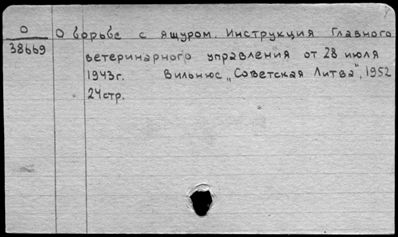 О
38669
О борьбе с ящуром. Инструкция Главного
ветеринарного управления от 28 июля
1943г. Вильнюс, „Советская Литва", 1952
24стр.